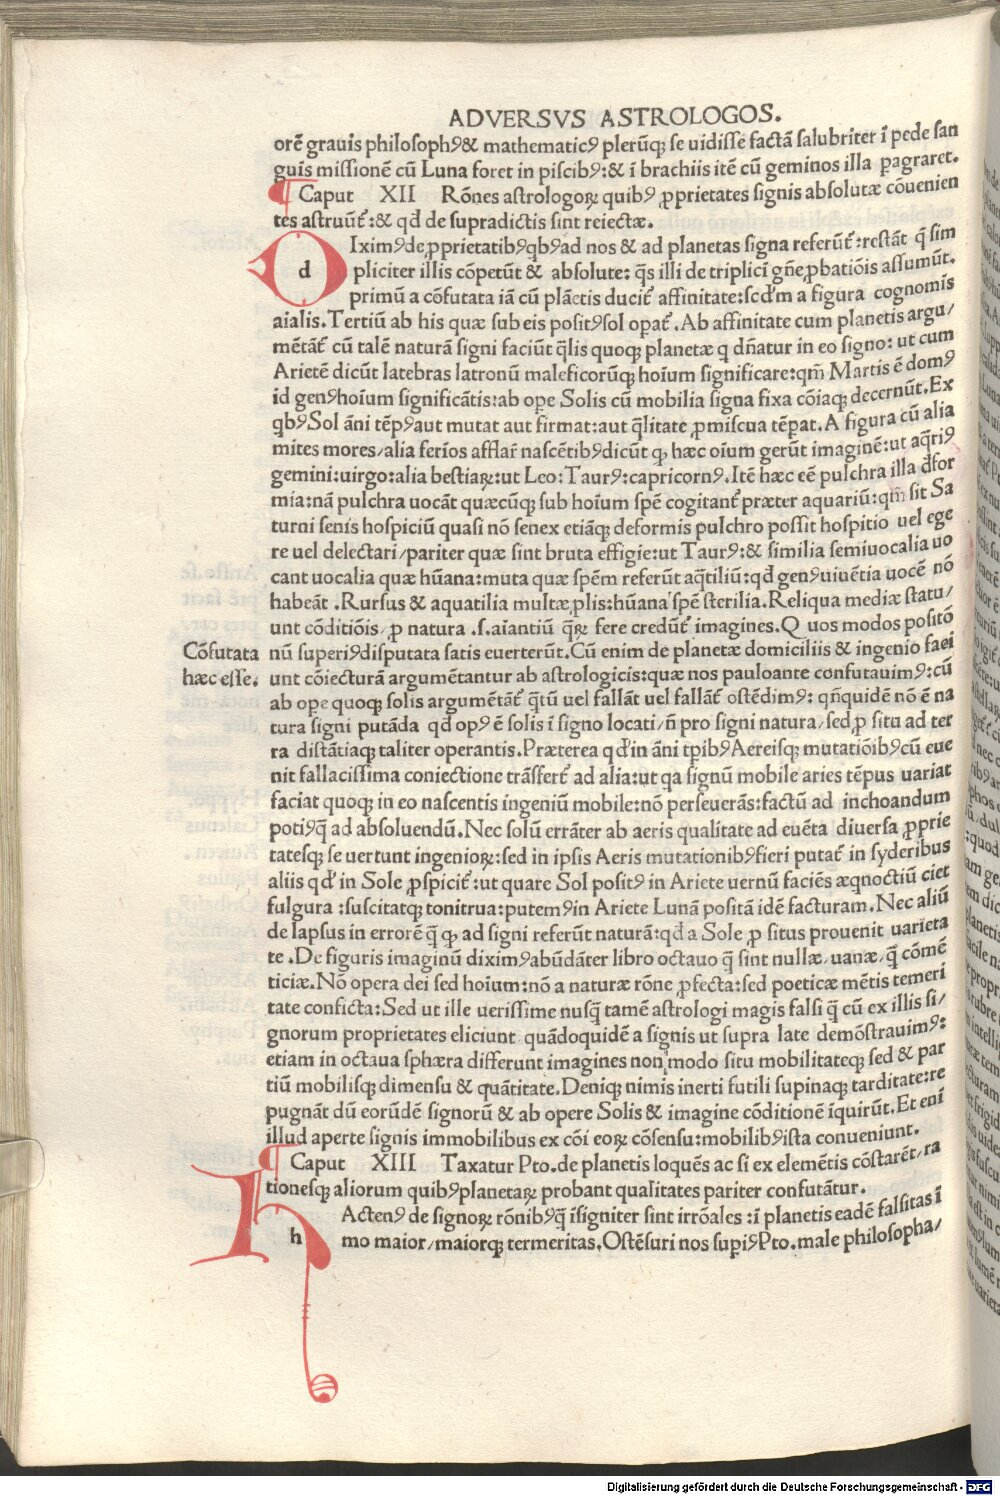 ADVERSVS ASTROLOGOS.
orē grauis philosophꝰ& mathematicꝰ plerūqꝫ se uidisse factā salubriter ī pede san
guis missionē cū Luna foret in piscibꝰ:& ī brachiis itē cū geminos illa pagraret.
Caput XII Rōnes astrologoꝝ quibꝰ ꝓprietates signis absolutæ cōuenien
tes astruūt᷑:& qđ de supradictis sint reiectæ.
d Iximꝰde ꝓprietatibꝰqbꝰad nos & ad planetas signa referūt᷑:restāt q̄ sim
pliciter illis cōpetūt & absolute: q̄s illi de triplici gn̄e ꝓbatiōis assumūt.
primū a cōfutata iā cū plāetis ducit᷑ affinitate:scđm a figura cognomis
aialis.Tertiū ab his quæ sub eis positꝰsol opat᷑.Ab affinitate cum planetis argu/
mētāt᷑ cū talē naturā signi faciūt q̄lis quoqꝫ planetæ q dn̄atur in eo signo: ut cum
Arietē dicūt latebras latronū maleficorūqꝫ hoium significare:qm̄ Martis ē domꝰ
id genꝰhoium significātis:ab ope Solis cū mobilia signa fixa cōiaqꝫ decernūt.Ex
qbꝰSol āni tēpꝰaut mutat aut firmat:aut q̄litate ꝓmiscua tēpat.A figura cū alia
mites mores/alia ferios afflar̄ nascētibꝰdicūt qꝫ hæc oium gerūt imaginē:ut aq̄riꝰ
gemini:uirgo:alia bestiaꝝ:ut Leo:Taurꝰ:capricornꝰ.Itē hæc eē pulchra illa d̄for
mia:nā pulchra uocāt quæcūqꝫ sub hoium spē cogitant᷑ præter aquariū:qm̄ sit Sa
turni senis hospiciū quasi nō senex etiāqꝫ deformis pulchro possit hospitio uel ege
re uel delectari/pariter quæ sint bruta effigie:ut Taurꝰ:& similia semiuocalia uo
cant uocalia quæ hūana:muta quæ spēm referūt aq̄tiliū:qđ genꝰuiuētia uocē nō
habeāt .Rursus & aquatilia multæ ꝓlis:hūana spē sterilia.Reliqua mediæ statu/
unt cōditiōis/ ꝓ natura .s.aiantiū q̄ꝝ fere credūt᷑ imagines.Q uos modos positō
nū superiꝰdisputata satis euerterūt.Cū enim de planetæ domiciliis & ingenio faci
unt cōiecturā argumētantur ab astrologicis:quæ nos pauloante confutauimꝰ:cū
ab ope quoqꝫ solis argumētāt᷑ q̄tū uel fallāt uel fallāt᷑ ostēdimꝰ: qn̄quidē nō ē na
tura signi putāda qđ opꝰ ē solis ī signo locati/ n̄ pro signi natura/ sed ꝓ situ ad ter
ra distātiaqꝫ taliter operantis.Præterea qđ in āni tꝑibꝰAereisqꝫ mutatiōibꝰcū eue
nit fallacissima coniectione trāsfert᷑ ad alia:ut qa signū mobile aries tēpus uariat
faciat quoqꝫ in eo nascentis ingeniū mobile:nō perseuerās:factū ad inchoandum
potiꝰq̄ ad absoluendū.Nec solū errāter ab aeris qualitate ad euēta diuersa ꝓprie
tatesqꝫ se uertunt ingenioꝝ:sed in ipsis Aeris mutationibꝰfieri putāt᷑ in syderibus
aliis qđ in Sole ꝓspicit᷑:ut quare Sol positꝰ in Ariete uernū faciēs æqnoctiū ciet
fulgura :suscitatqꝫ tonitrua:putemꝰin Ariete Lunā positā idē facturam.Nec aliū
de lapsus in errorē q̄ qꝫ ad signi referūt naturā:qđ a Sole ꝓ situs prouenit uarieta
te .De figuris imaginū diximꝰabūdāter libro octauo q̄ sint nullæ/uanæ/q̄ cōmē
ticiæ.Nō opera dei sed hoium:nō a naturæ rōne ꝓfecta:sed poeticæ mētis temeri
tate conficta:Sed ut ille uerissime nusq̄ tamē astrologi magis falsi q̄ cū ex illis si/
gnorum proprietates eliciunt quādoquidē a signis ut supra late demōstrauimꝰ:
etiam in octaua sphæra differunt imagines non modo situ mobilitateqꝫ sed & par
tiū mobilisqꝫ dimensu & quātitate.Deniqꝫ nimis inerti futili supinaqꝫ tarditate:re
pugnāt dū eorūdē signorū & ab opere Solis & imagine cōditionē īquirūt.Et enī
illud aperte signis immobilibus ex cōi eoꝝ cōsensu:mobilibꝰista conueniunt.
Cōfutata
hæc esse.
Caput XIII Taxatur Pto.de planetis loquēs ac si ex elemētis cōstarēt/ra
tionesqꝫ aliorum quibꝰplanetaꝝ probant qualitates pariter confutātur.
h Actenꝰ de signoꝝ rōnibꝰq̄ īsigniter sint irrōales :ī planetis eadē falsitas ī
mo maior/maiorqꝫ termeritas.Ostēsuri nos supiꝰPto.male philosopha/
Digitalisierung gefördert durch die Deutsche Forschungsgemeinschaft - DFG